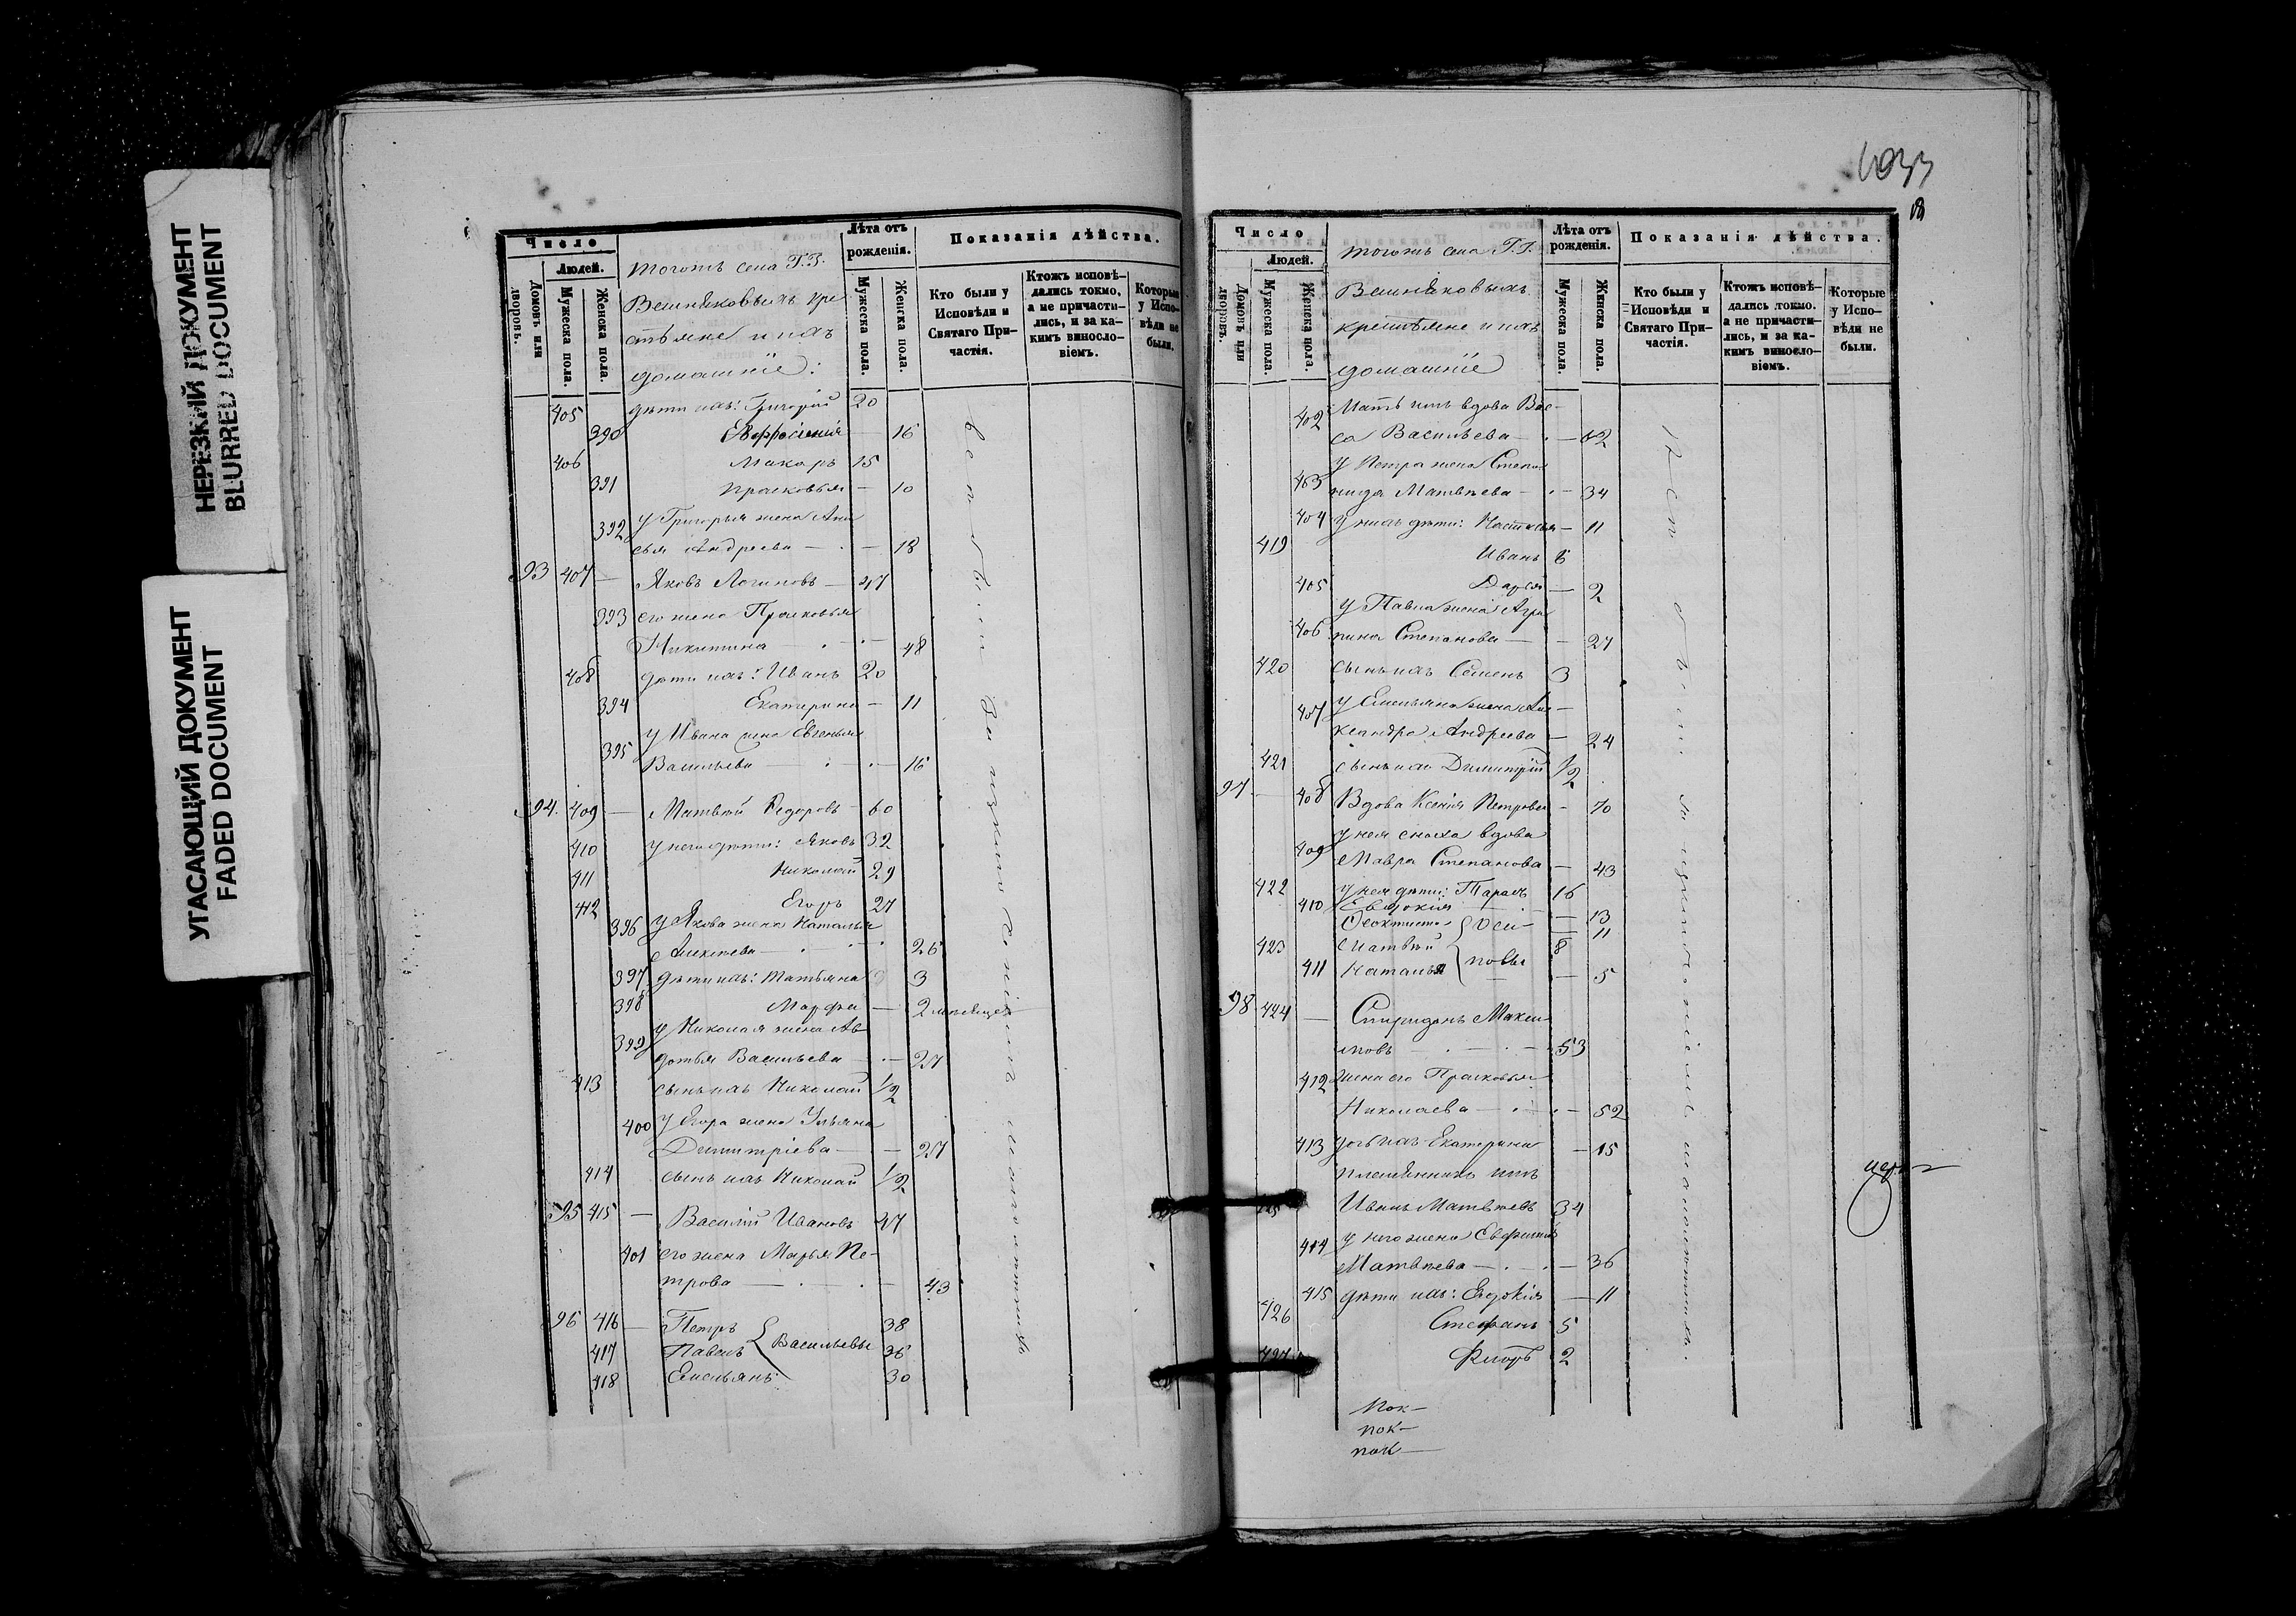 НЕРЕЗКИЙ ДОКУМЕНТ
BLURRED DOCUMENT
УГАСАЮЩИЙ ДОКУМЕНТ
FADED DOCUMENT
Число
Людей.
Домовъ или дворовъ.
Мужеска пола.
Женска пола.
тогожъ села Г.Г.
Вешняковыхъ кре-
стьяне и ихъ
домашніе:
Лѣта отъ рожденія.
Мужеска пола.
Женска пола.
Показанія дѣйства.
Кто были у Исповѣди и Святаго Причастія.
Ктожъ исповѣдались токмо, а не причастились, и за какимъ винословіемъ.
Которые у Исповѣди не были.
405 дѣти ихъ: Григорій 20
390 Евфросинія — 16
406 Макаръ 15
391 Прасковья — 10
392 у Григорья жена Ани-
сья Андреева — 18
93 407 — Яковъ Логиновъ — 47
393 его жена Прасковья
Никитина — 48
408 дѣти ихъ: Иванъ 20
394 Екатерина — 11
395 у Ивана жена Евгенья
Васильева — 16
94. 409 — Матвѣй Ѳедоровъ — 60
410 у него дѣти: Яковъ 32
411 Николай 29
412 Егоръ 27
396 у Якова жена Наталья
Алексѣева — 26
397 дѣти ихъ: Татьяна 3
398 Марфа — 2 мѣсяцевъ
399 у Николая жена Ав-
дотья Васильева — 27
413 сынъ ихъ Николай 1/2
400 у Егора жена Ульяна
Димитріева — 27
414 сынъ ихъ Николай 1/2
95 415 — Василій Ивановъ 47
401 его жена Марья Пе-
трова — 43
96 416 — Петръ 38
417 Павелъ Васильевы 36
418 Емельянъ 30
1033
Число
Людей.
Домовъ или дворовъ.
Мужеска пола.
Женска пола.
тогожъ села Г.Г.
Вешняковыхъ
крестьяне и ихъ
домашніе
Лѣта отъ рожденія.
Мужеска пола.
Жинска пола.
Показанія дѣйства.
Кто были у Исповѣди и Святаго Причастія.
Ктожъ исповѣдались токмо. а не причастились, и за какимъ винословіемъ.
Которые у Исповѣди не были.
402 Мать ихъ вдова Вас-
са Васильева — 62
403 у Петра жена Степа-
нида Матвѣева — 34
404 у нихъ дѣти: Настасья — 11
419 Иванъ 6
405 Дарья — 2
406 у Павла жена Агри-
пина Степанова — 27
420 сынъ ихъ Семенъ 3
407 у Емельяна жена Але-
ксандра Андреева — 24
421 сынъ ихъ Димитрій 1/2
97 — 408 Вдова Ксенія Петрова — 70
409 у нея сноха вдова
Мавра Степанова — 43
422 у нея дѣти: Тарасъ 16
410 Евдокія — 13
Ѳеоктиста Оси- — 11
423 Матвѣй 8
411 Наталья повы — 5
98 424 — Спиридонъ Макси-
мовъ — 53
412 жена его Прасковья
Николаева — 52
413 дочь ихъ Екатерина — 15
племянникъ ихъ
425 Иванъ Матвѣевъ 34
414 у него жена
Матвѣева — 36
415 дѣти ихъ: Евдокія — 11
426 Стефанъ 5
427 Флоръ 2
Пок—
пок—
пок—